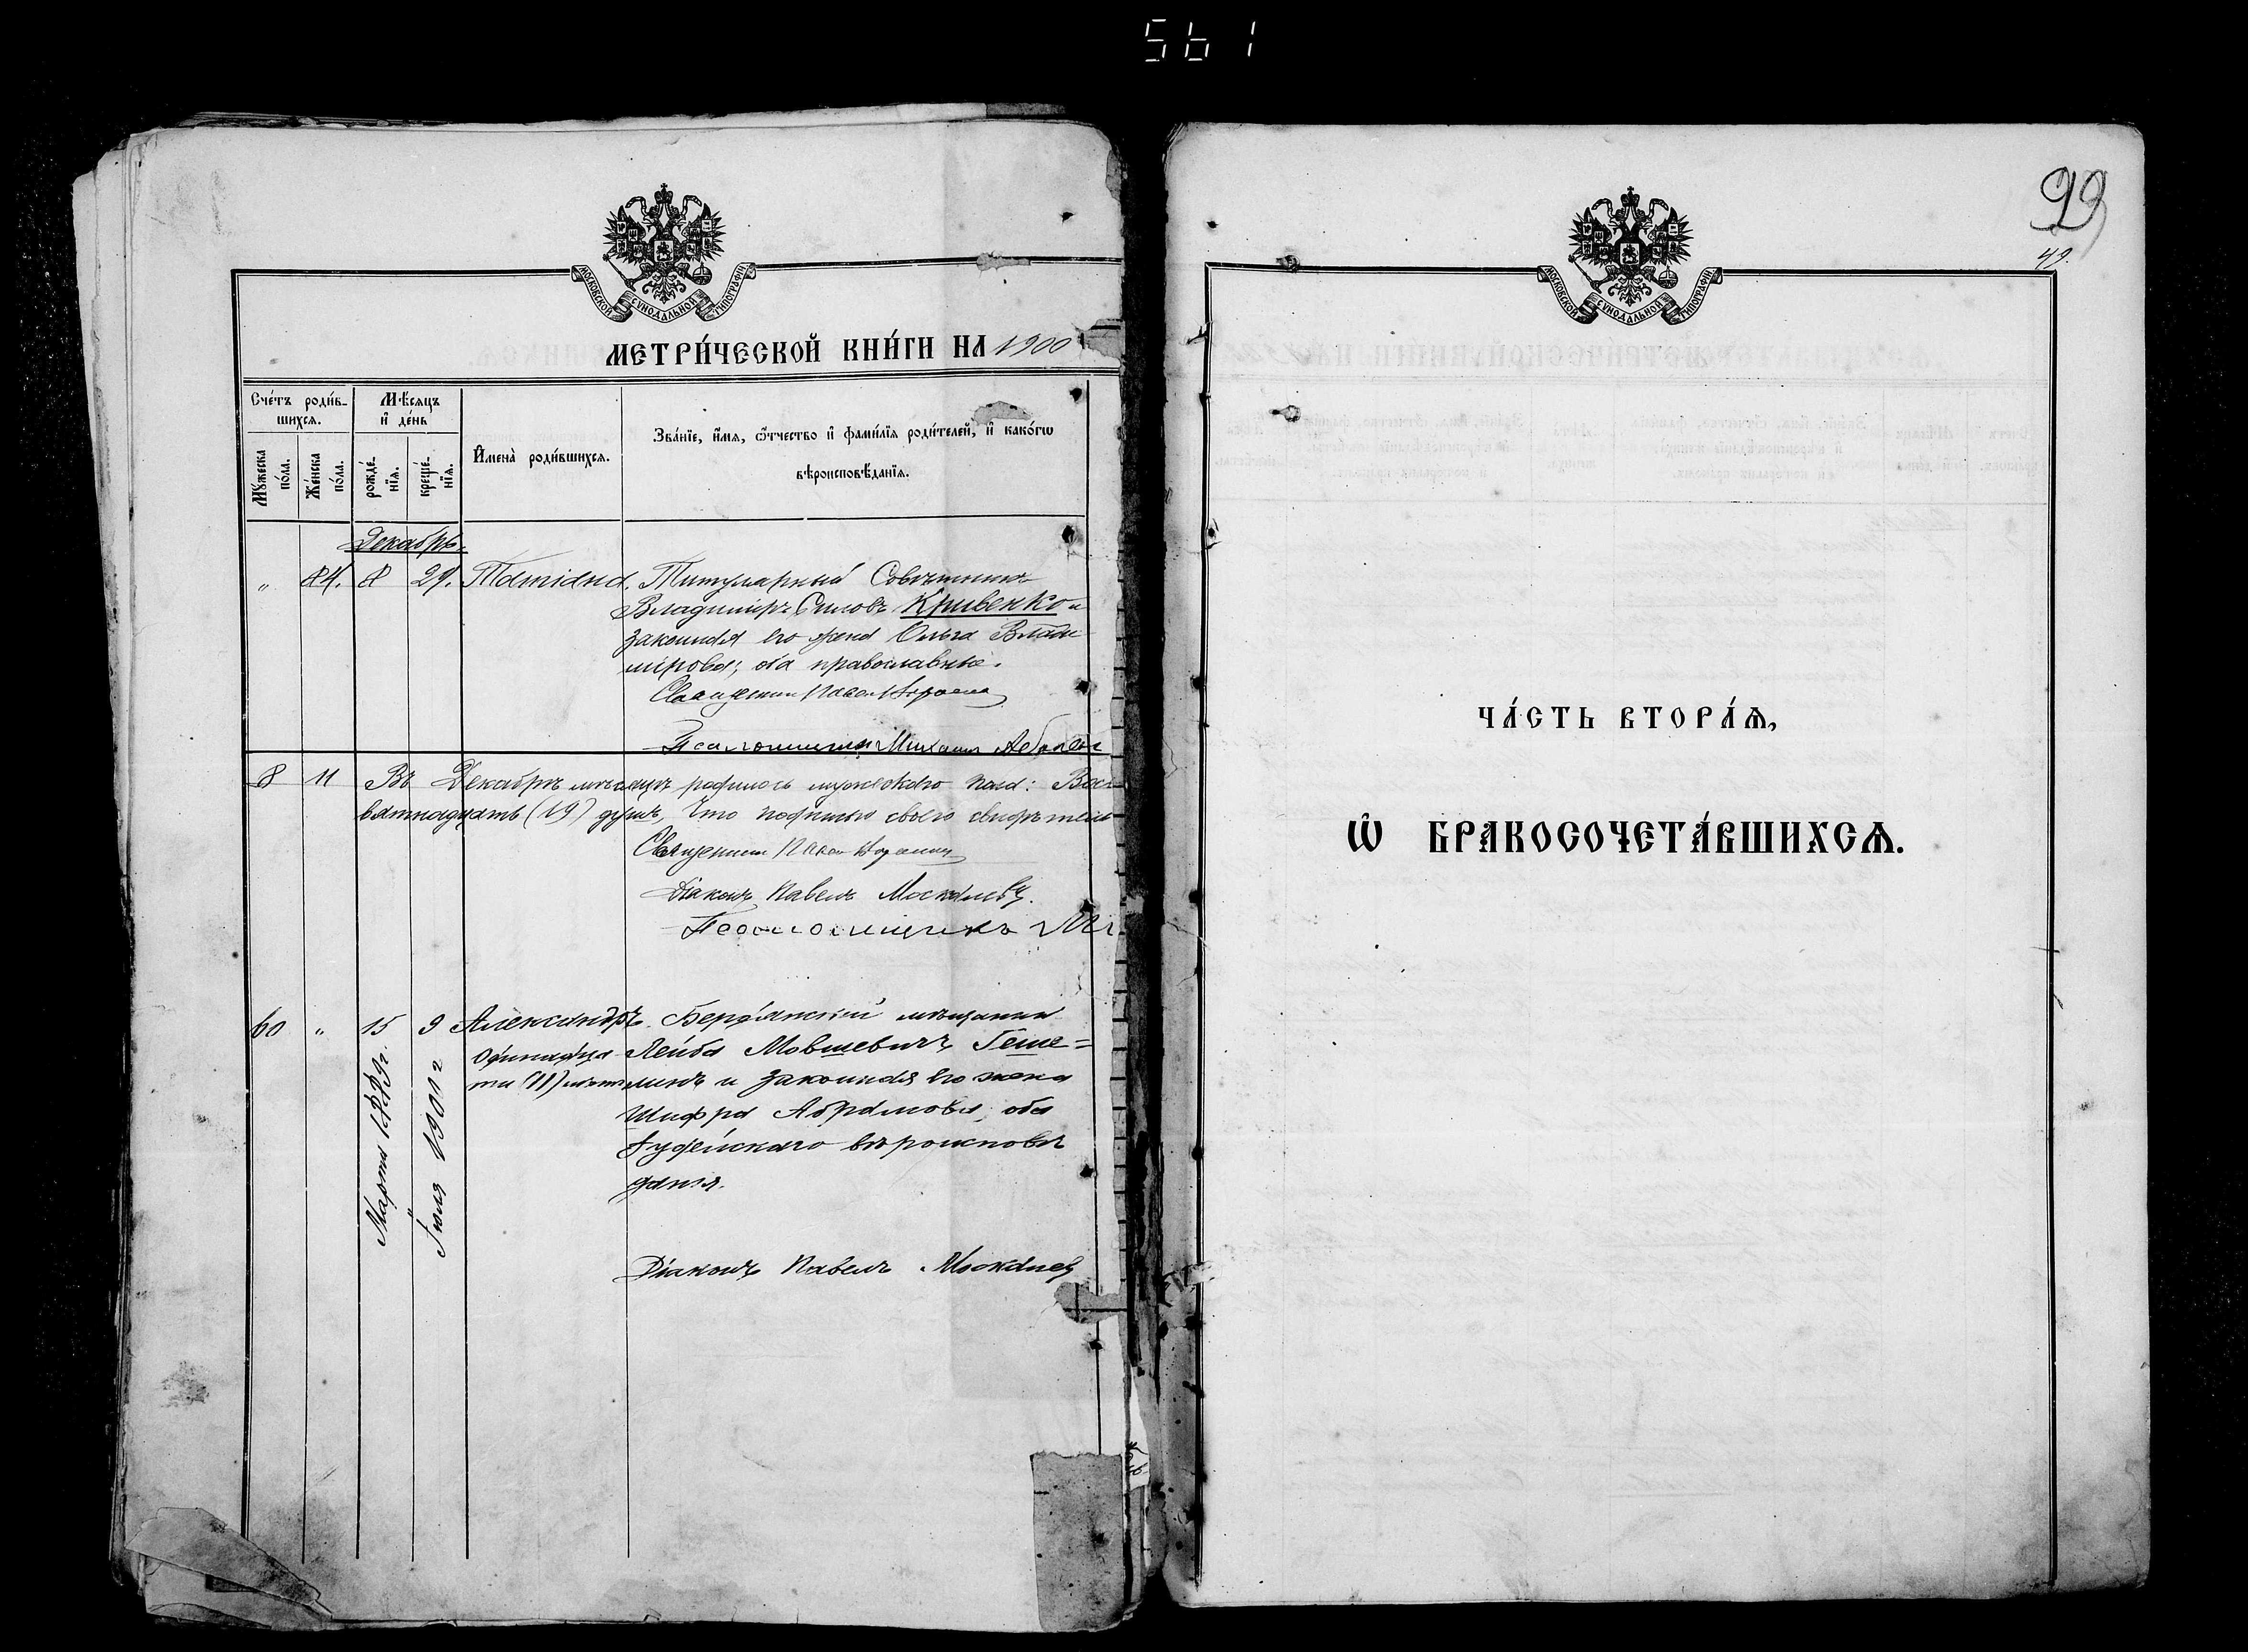 561
МОСКОВСКОЙ СУНОДАЛЬНОЙ ТИПОГРАФІИ
МЕТРИ́ЧЕСКОЙ КНИ́ГИ НА 1900
Сче́тъ роди́в-
шихсѧ.
Мꙋ́жеска
по́ла.
Же́нска
по́ла.
Мѣ́сѧцъ
и҆ де́нь
рожде́-
нїѧ.
креще́-
нїѧ.
И҆мена̀ роди́вшихсѧ.
Зва́нїе, и҆́мѧ, ѻ҆́тчество и҆ фами́лїѧ роди́телей, и҆ како́гѡ
вѣроисповѣ́данїѧ.
Декабрь.
„ 84. 8 29. Татіана. Титулярный Совѣтникъ
Владиміръ Силовъ Кривенко и
законная его жена Ольга Влади
мірова; оба православные.
Священникъ
Псаломщикъ Михаилъ
8 11 Въ Декабрѣ мѣсяцѣ родилось мужескаго пола: Вос
вятнадцать (19) душъ, Что подписью своею свидѣтель
Священникъ
Діаконъ Павелъ Москалевъ.
Псаломщикъ Ми
60 „ 15 9 Александръ. Бердянскій мѣщанин
Марта 1889г.
Іюля 1901г
Одинадца
ти (11) лѣтъ
Лейба Мовшевичъ Геше=
линъ и законная его жена
Шифра Абрамова; оба
Іудейскаго вѣроисповѣ
данія.
Діаконъ Павелъ Москалев
29
49.
МОСКОВСКОЙ СУНОДАЛЬНОЙ ТИПОГРАФІИ
ЧА́СТЬ ВТОРА́Ѧ,
Ѡ҆ БРАКОСОЧЕТА́ВШИХСѦ.